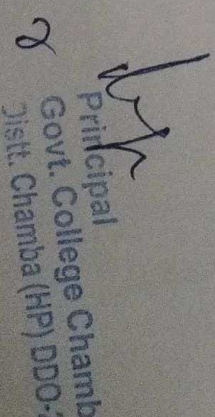 Principal
Govt. College Chamb
Distt. Chamba (HP) DDO-